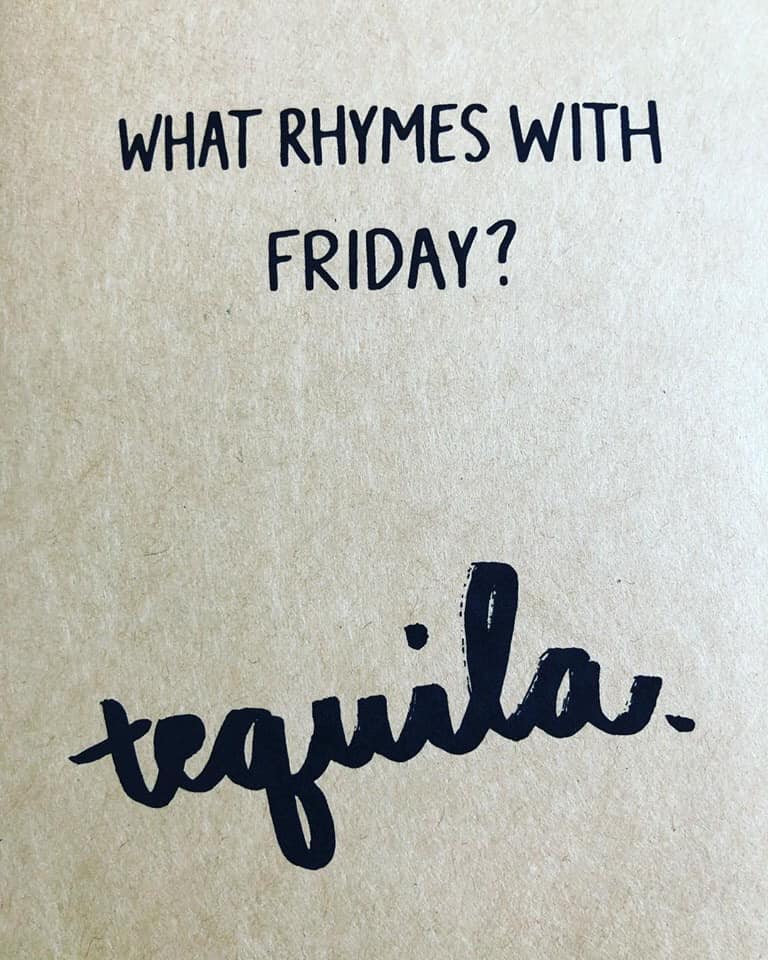 WHAT RHYMES WITH
FRIDAY?
tequila.